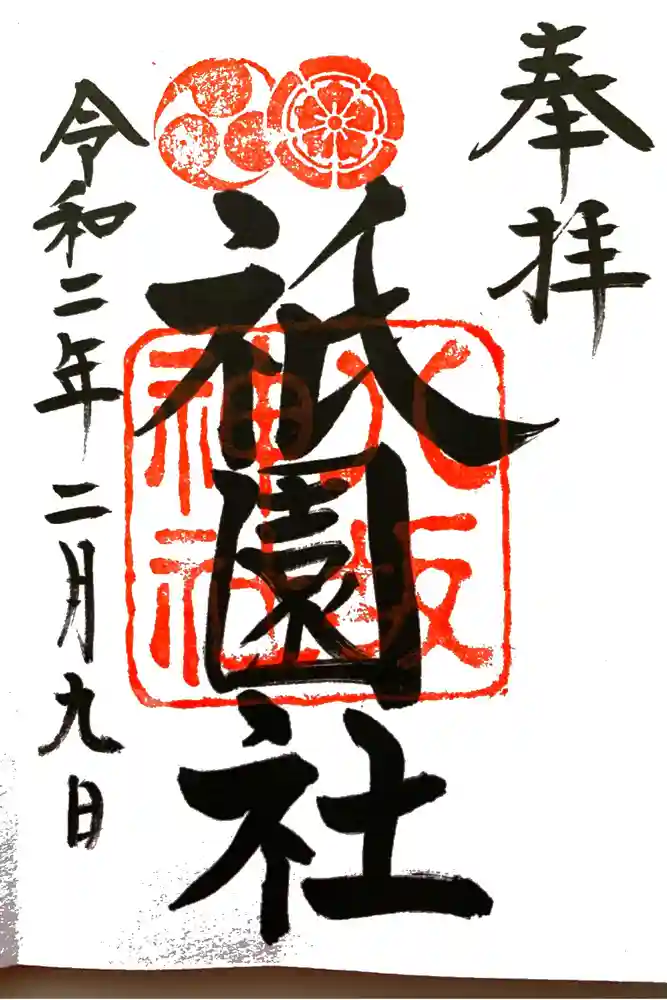 奉拝
祇園社
八坂
神社
令和二年二月九日